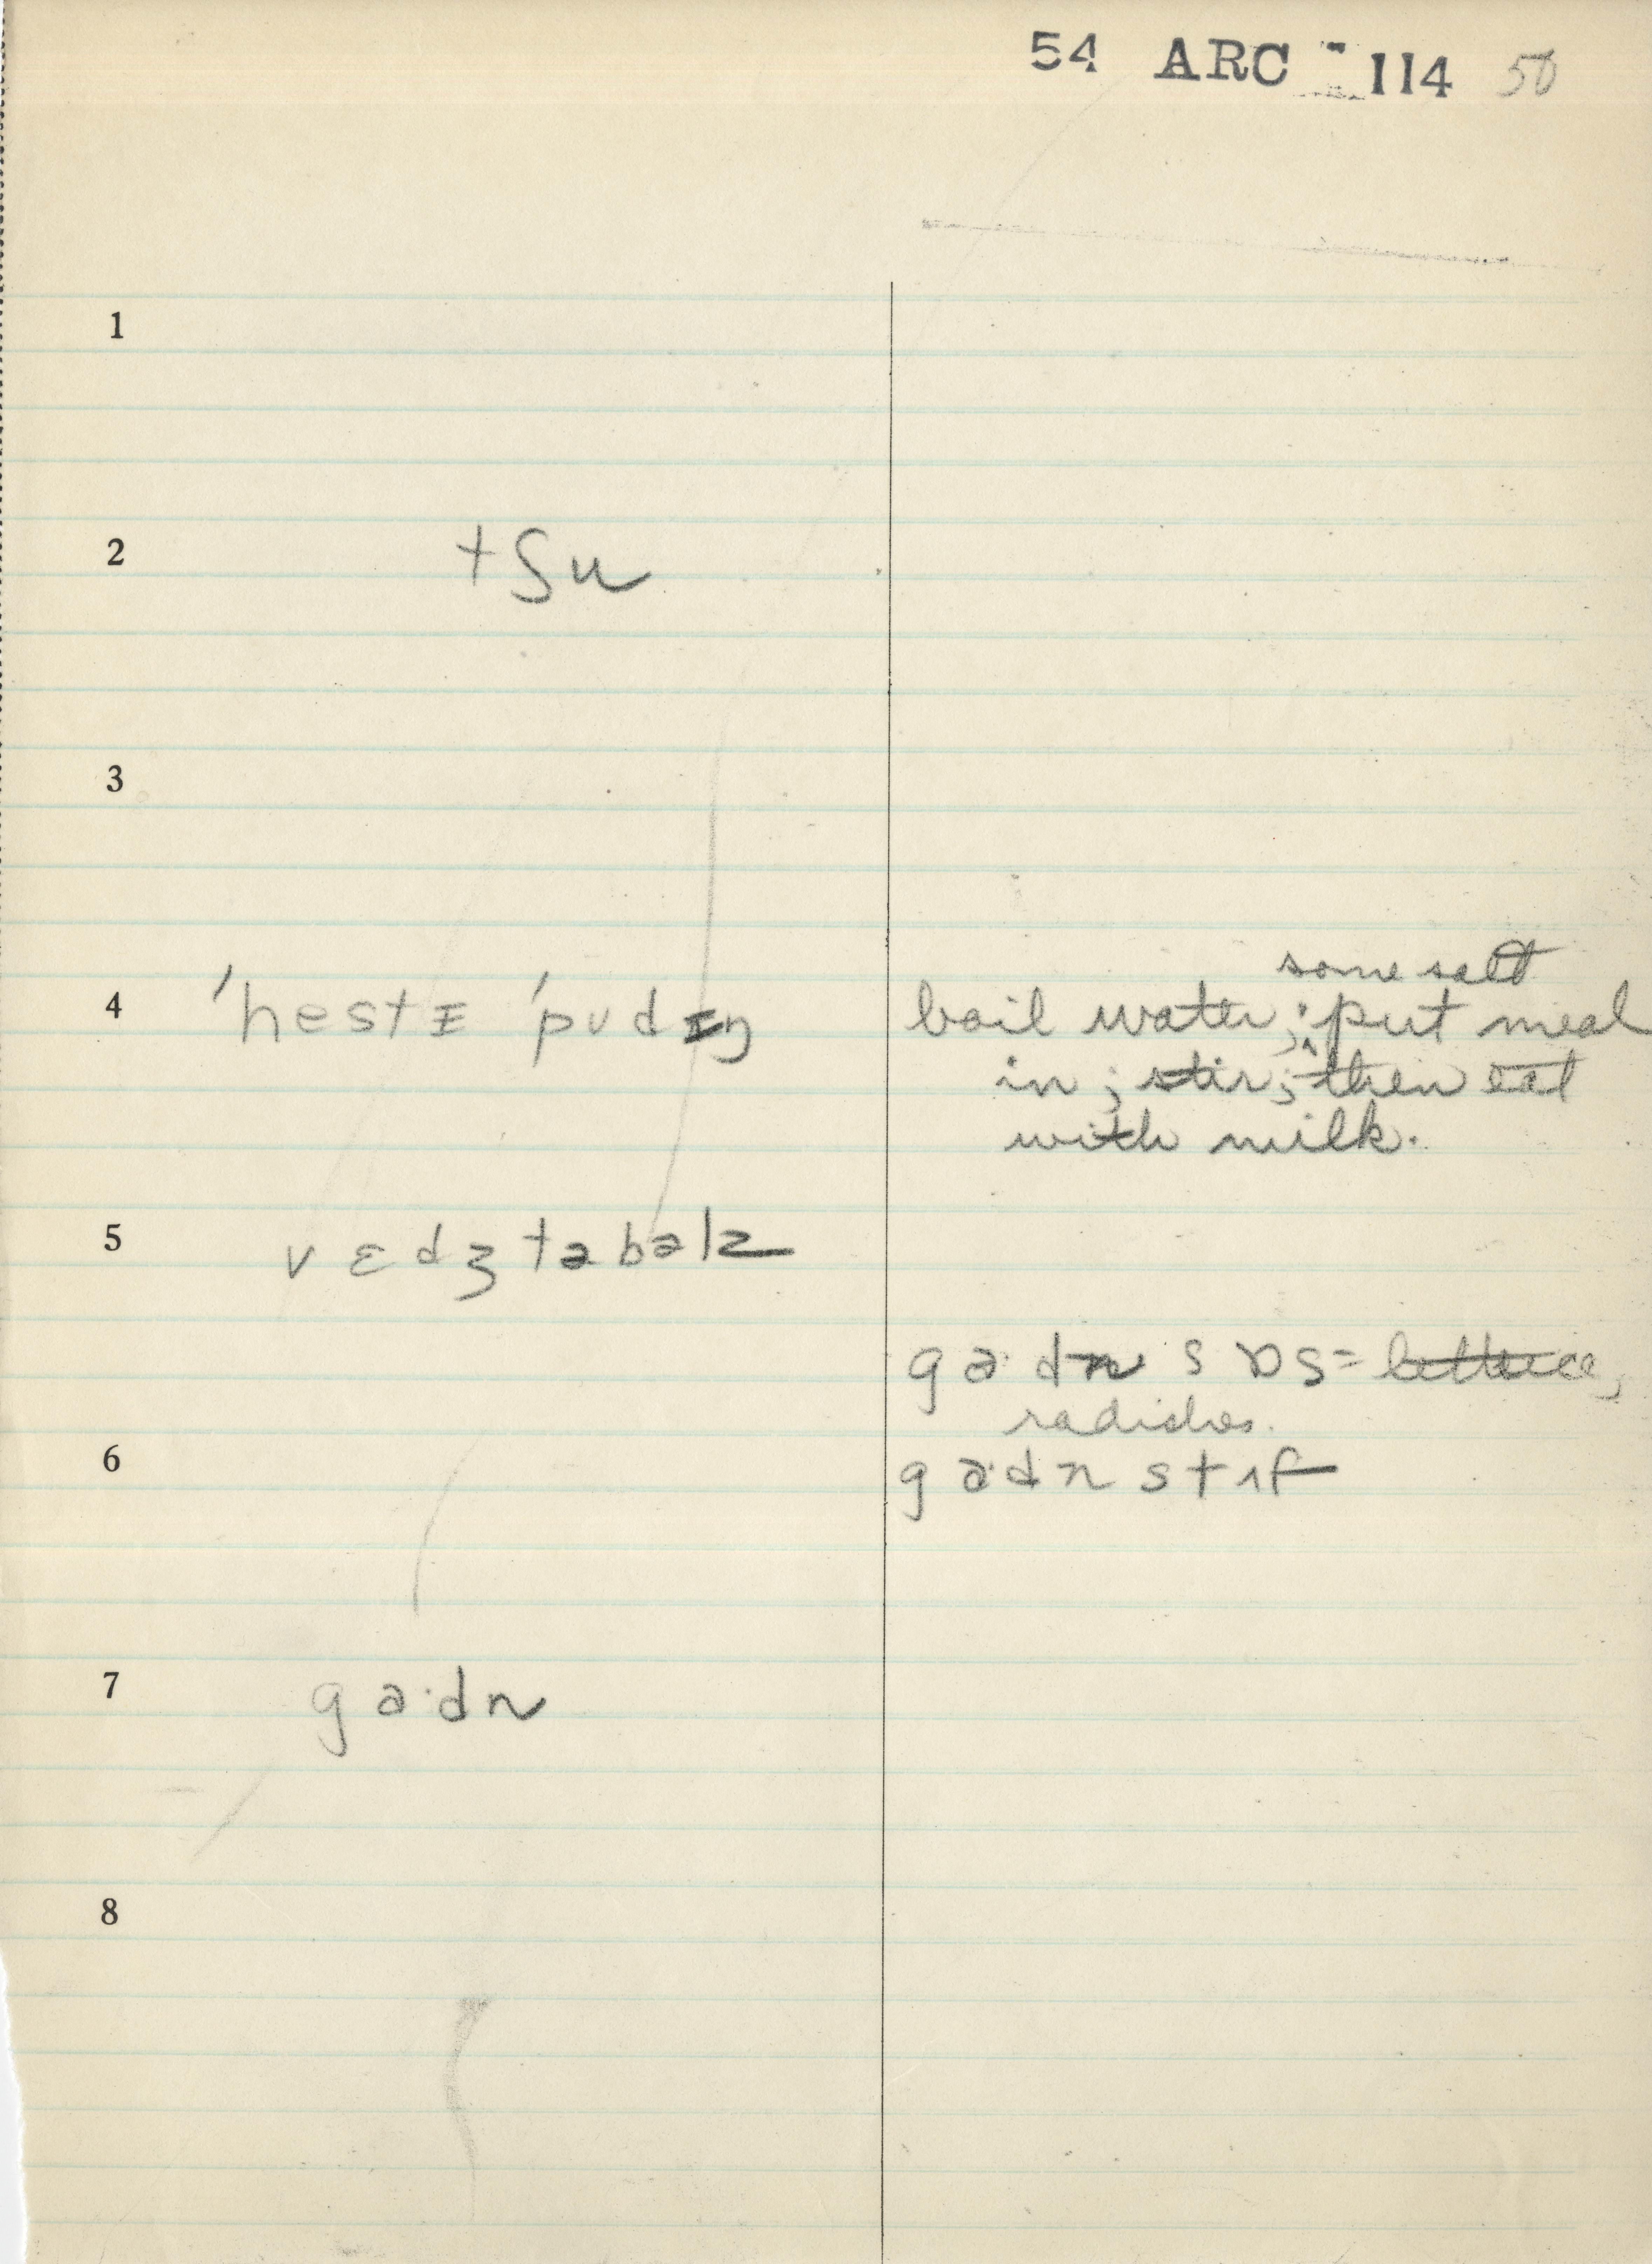 54 ARC - 114 50
1
2 tʃu
3
some salt
4 'hestɪ 'pudɪŋ boil water; ‸ put meal
in; stir; then eat
with milk.
5 vɛdʒtəbəlz
ga·dn sɒs = lettuce,
radishes.
6 ga·dn stɪf
7 ga·dn
8